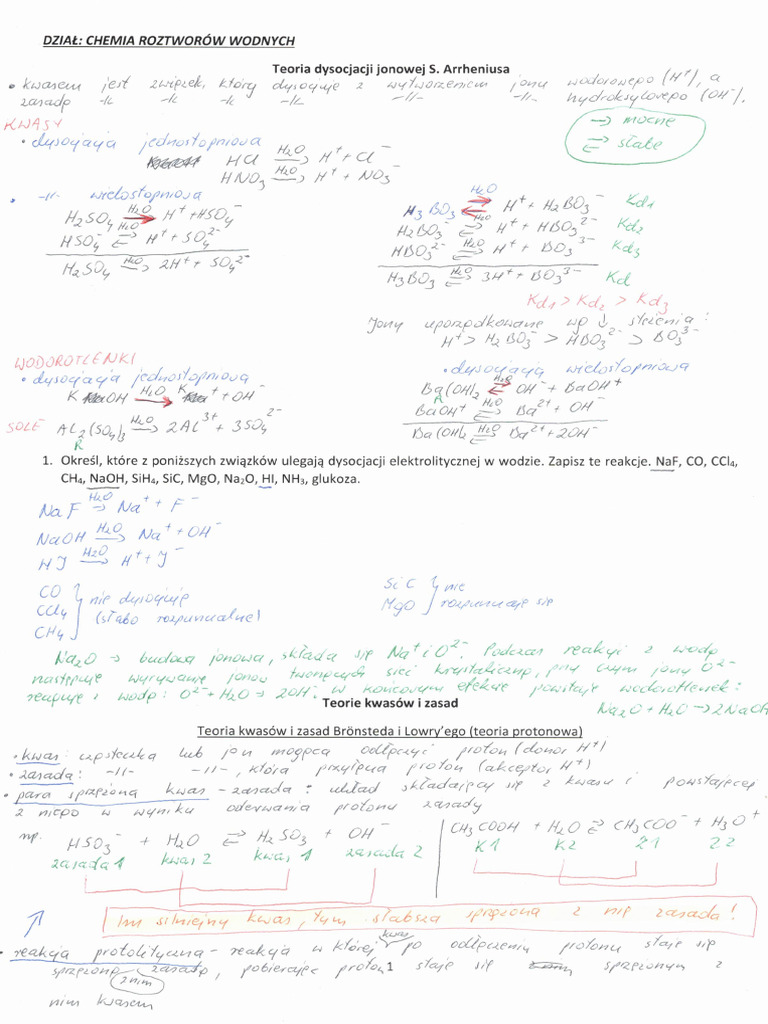 DZIAŁ: CHEMIA ROZTWORÓW WODNYCH
Teoria dysocjacji jonowej S. Arrheniusa
• kwasem jest związek, który dysocjuje z wytworzeniem jonu wodorowego (H⁺), a
zasadą -||- -||- -||- -||- -||- -||- hydroksylowego (OH⁻).
KWASY
→ mocne
⇄ słabe
• dysocjacja jednostopniowa
HCl →(H₂O) H⁺ + Cl⁻
HNO₃ →(H₂O) H⁺ + NO₃⁻
• -||- wielostopniowa
H₂SO₄ →(H₂O) H⁺ + HSO₄⁻
HSO₄⁻ ⇄(H₂O) H⁺ + SO₄²⁻
H₂SO₄ →(H₂O) 2H⁺ + SO₄²⁻
H₃BO₃ ⇄(H₂O) H⁺ + H₂BO₃⁻ Kd1
H₂BO₃⁻ ⇄(H₂O) H⁺ + HBO₃²⁻ Kd2
HBO₃²⁻ ⇄(H₂O) H⁺ + BO₃³⁻ Kd3
H₃BO₃ ⇄(H₂O) 3H⁺ + BO₃³⁻ Kd
Kd1 > Kd2 > Kd3
Jony uporządkowane wg ↓ stężenia:
H⁺ > H₂BO₃⁻ > HBO₃²⁻ > BO₃³⁻
WODOROTLENKI
• dysocjacja jednostopniowa
KOH →(H₂O) K⁺ + OH⁻
• dysocjacja wielostopniowa
Ba(OH)₂ ⇄(H₂O) OH⁻ + BaOH⁺
R
BaOH⁺ ⇄(H₂O) Ba²⁺ + OH⁻
Ba(OH)₂ ⇄(H₂O) Ba²⁺ + 2OH⁻
SOLE Al₂(SO₄)₃ →(H₂O) 2Al³⁺ + 3SO₄²⁻
R
1. Określ, które z poniższych związków ulegają dysocjacji elektrolitycznej w wodzie. Zapisz te reakcje. NaF, CO, CCl₄,
CH₄, NaOH, SiH₄, SiC, MgO, Na₂O, HI, NH₃, glukoza.
NaF →(H₂O) Na⁺ + F⁻
NaOH →(H₂O) Na⁺ + OH⁻
HJ →(H₂O) H⁺ + J⁻
CO
CCl₄
CH₄
} nie dysocjuje
(słabo rozpuszczalne)
SiC
MgO
} nie
rozpuszcza się
Na₂O → budowa jonowa, składa się Na⁺ i O²⁻. Podczas reakcji z wodą
następuje wyrywanie jonów tworzących sieć krystaliczną, przy czym jony O²⁻
reagują z wodą: O²⁻ + H₂O → 2OH⁻. w końcowym efekcie powstaje wodorotlenek:
Na₂O + H₂O → 2NaOH
Teorie kwasów i zasad
Teoria kwasów i zasad Brönsteda i Lowry'ego (teoria protonowa)
• kwas: cząsteczka lub jon mogąca odłączyć proton (donor H⁺)
• zasada: -||- -||-, która przyłącza proton (akceptor H⁺)
• para sprzężona kwas - zasada: układ składający się z kwasu i powstającej
z niego w wyniku oderwania protonu zasady
np. HSO₃⁻ + H₂O ⇄ H₂SO₃ + OH⁻
zasada 1 kwas 2 kwas 1 zasada 2
CH₃COOH + H₂O ⇄ CH₃COO⁻ + H₃O⁺
K1 K2 Z1 Z2
Im silniejszy kwas, tym słabsza sprzężona z nim zasada!
• reakcja protolityczna - reakcja w której kwas po odłączeniu protonu staje się
sprzężoną z nim zasadą, pobierając proton staje się sprzężonym z
1
nim kwasem